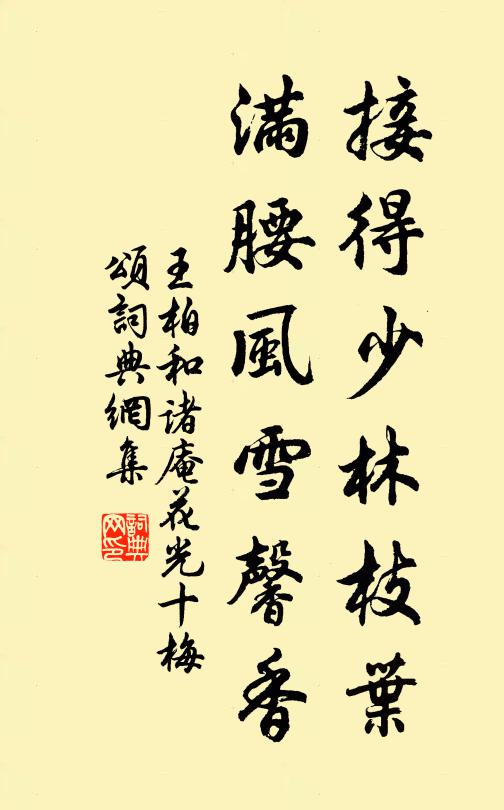 接得少林枝葉
滿腰風雪馨香
王柏和諸庵花光十梅
頌詞典網集
詞典
网印